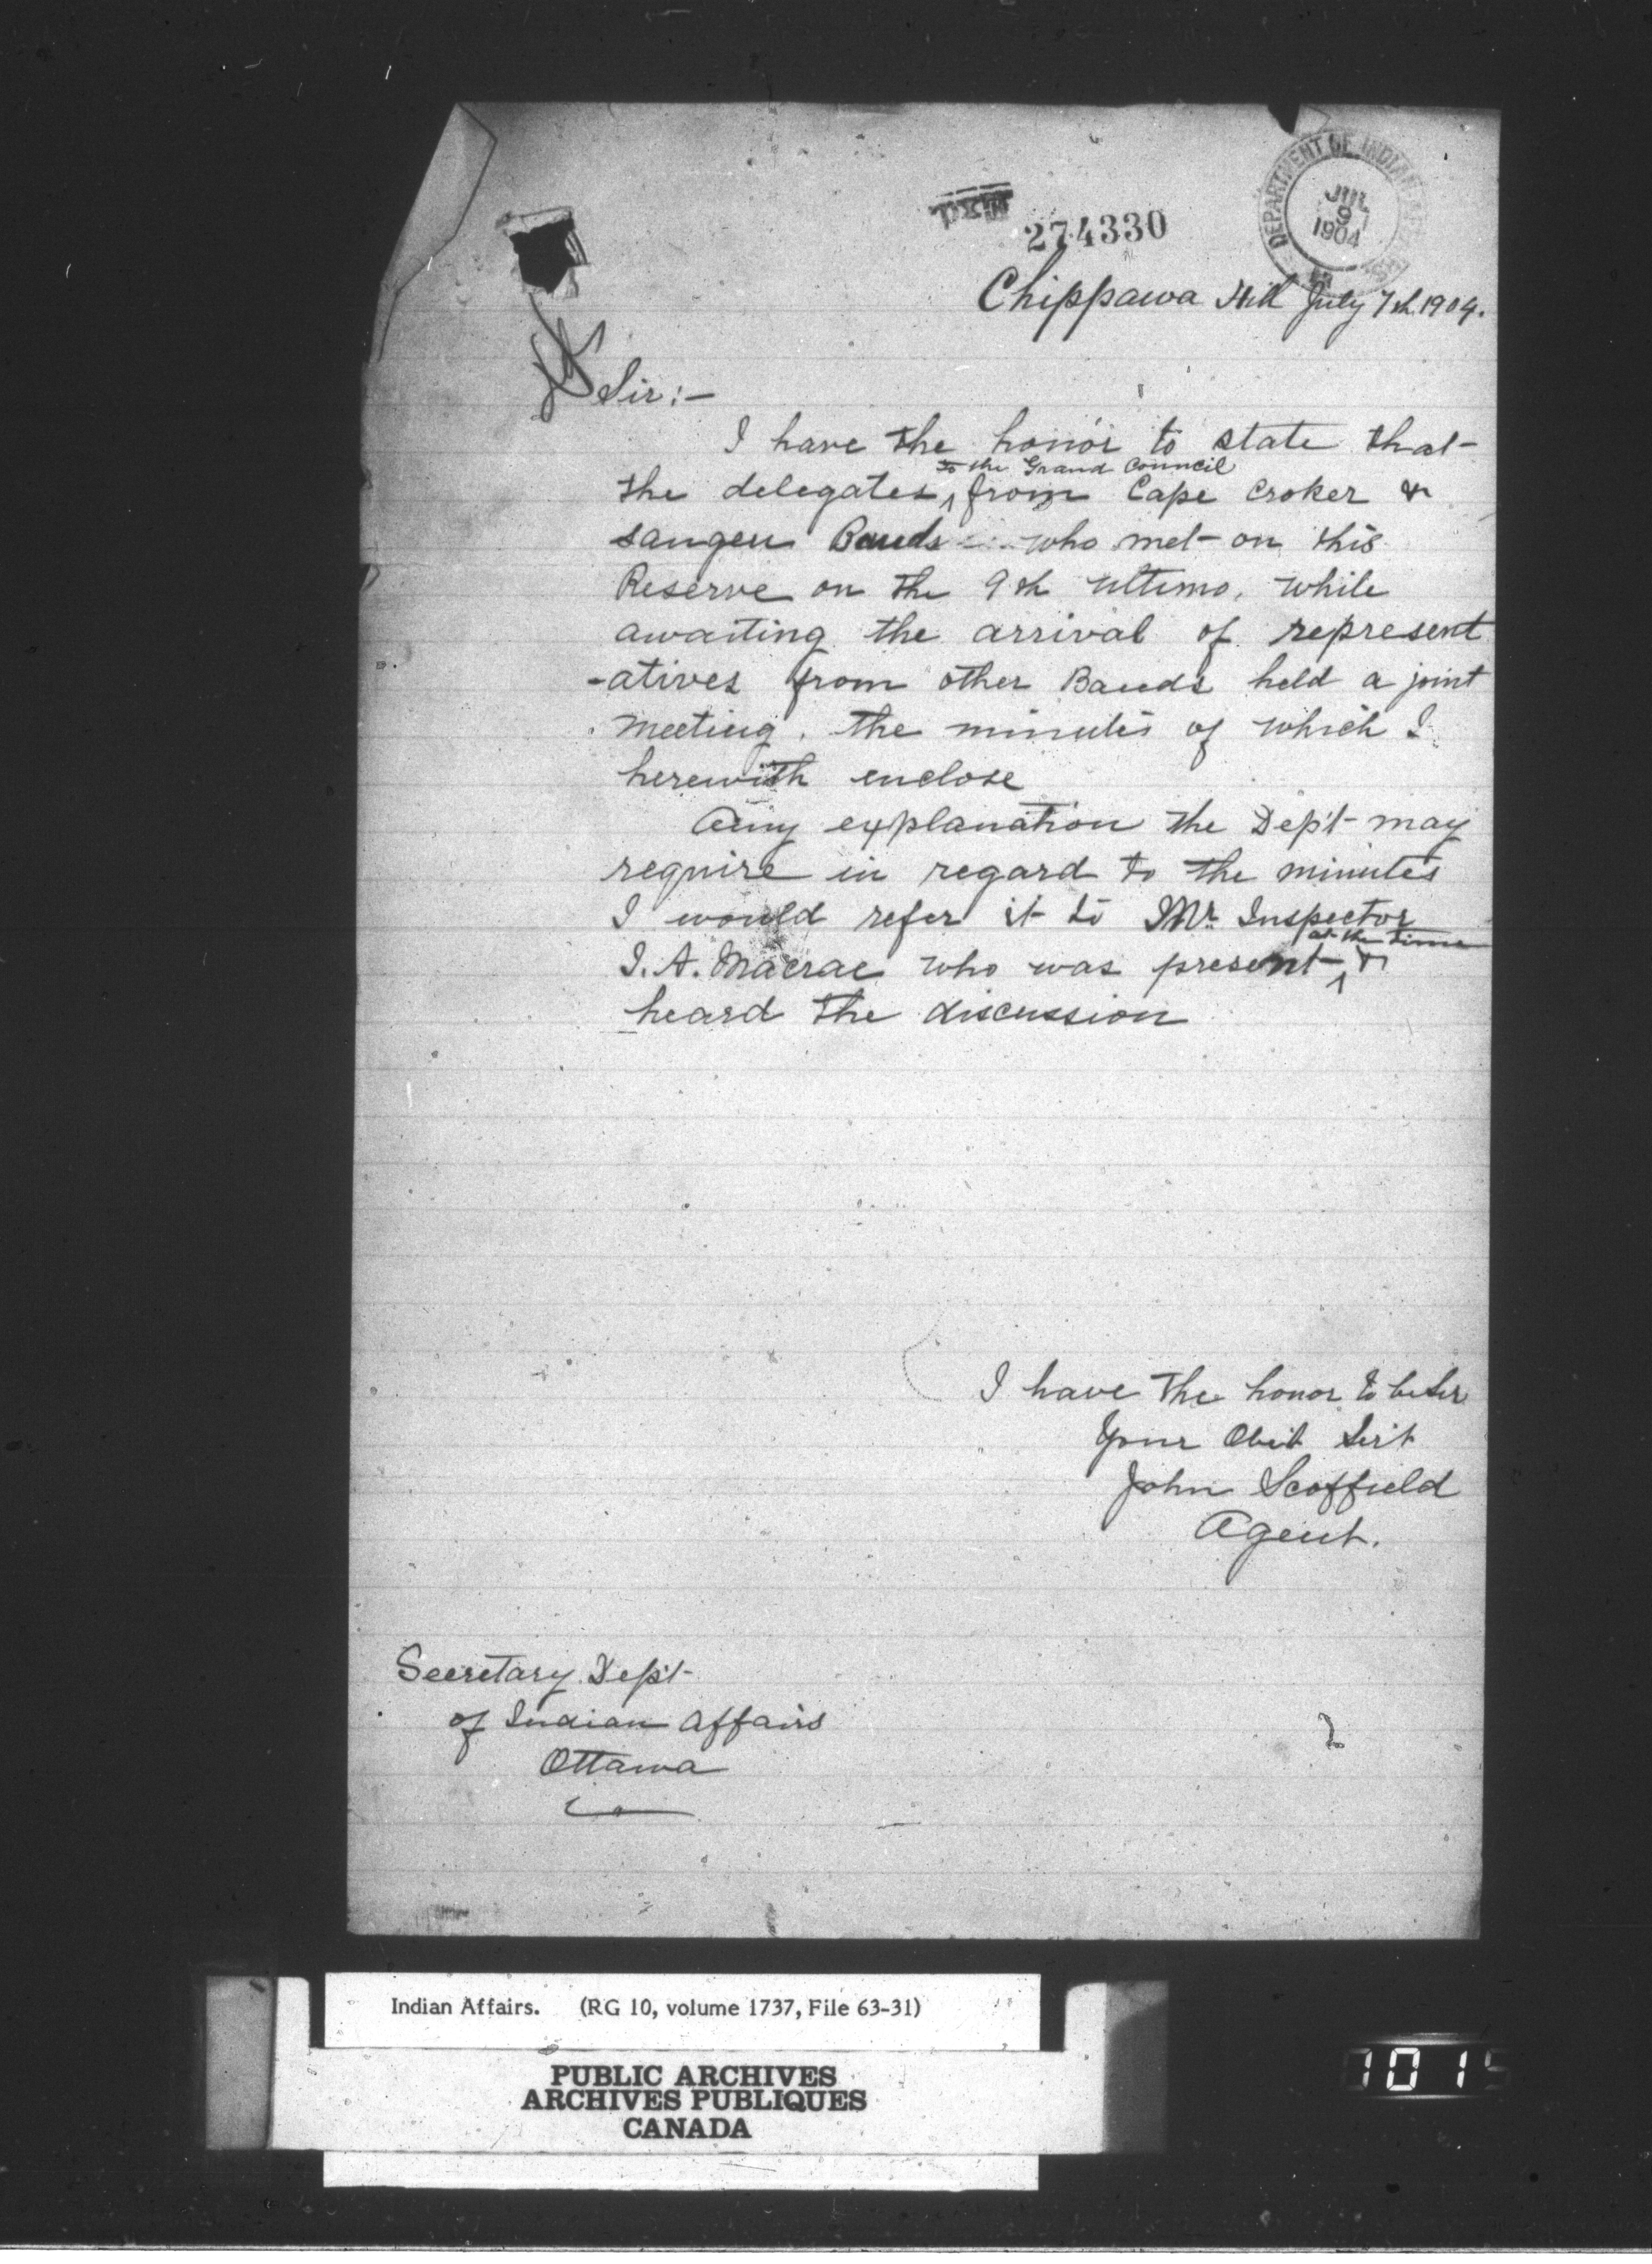 DEPARTMENT OF INDIAN
JUL
9
1904
274330
Chippawa Hill July 7th 1904.
Sir:-
I have the honor to state that
to the Grand Council
the delegates ^ from Cape Croker &
Saugeen Bands who met on this
Reserve on the 9th ultimo, while
awaiting the arrival of represent
-atives from other Bands held a joint
meeting, the minutes of which I
herewith enclose
Any explanation the Dep't may
require in regard to the minutes
I would refer it to Mr. Inspector
at the time
J. A. Macrae who was present ^ &
heard the discussion
I have the honor to be Sir
Your Obed't Serv't
John Scoffield
Agent.
Secretary Dep't
of Indian Affairs
Ottawa
Indian Affairs. (RG 10, volume 1737, File 63-31)
PUBLIC ARCHIVES
ARCHIVES PUBLIQUES
CANADA